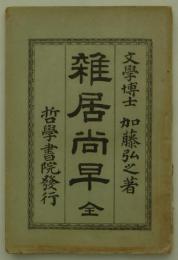 文學博士 加藤弘之著
雜居尚早 全
哲學書院發行